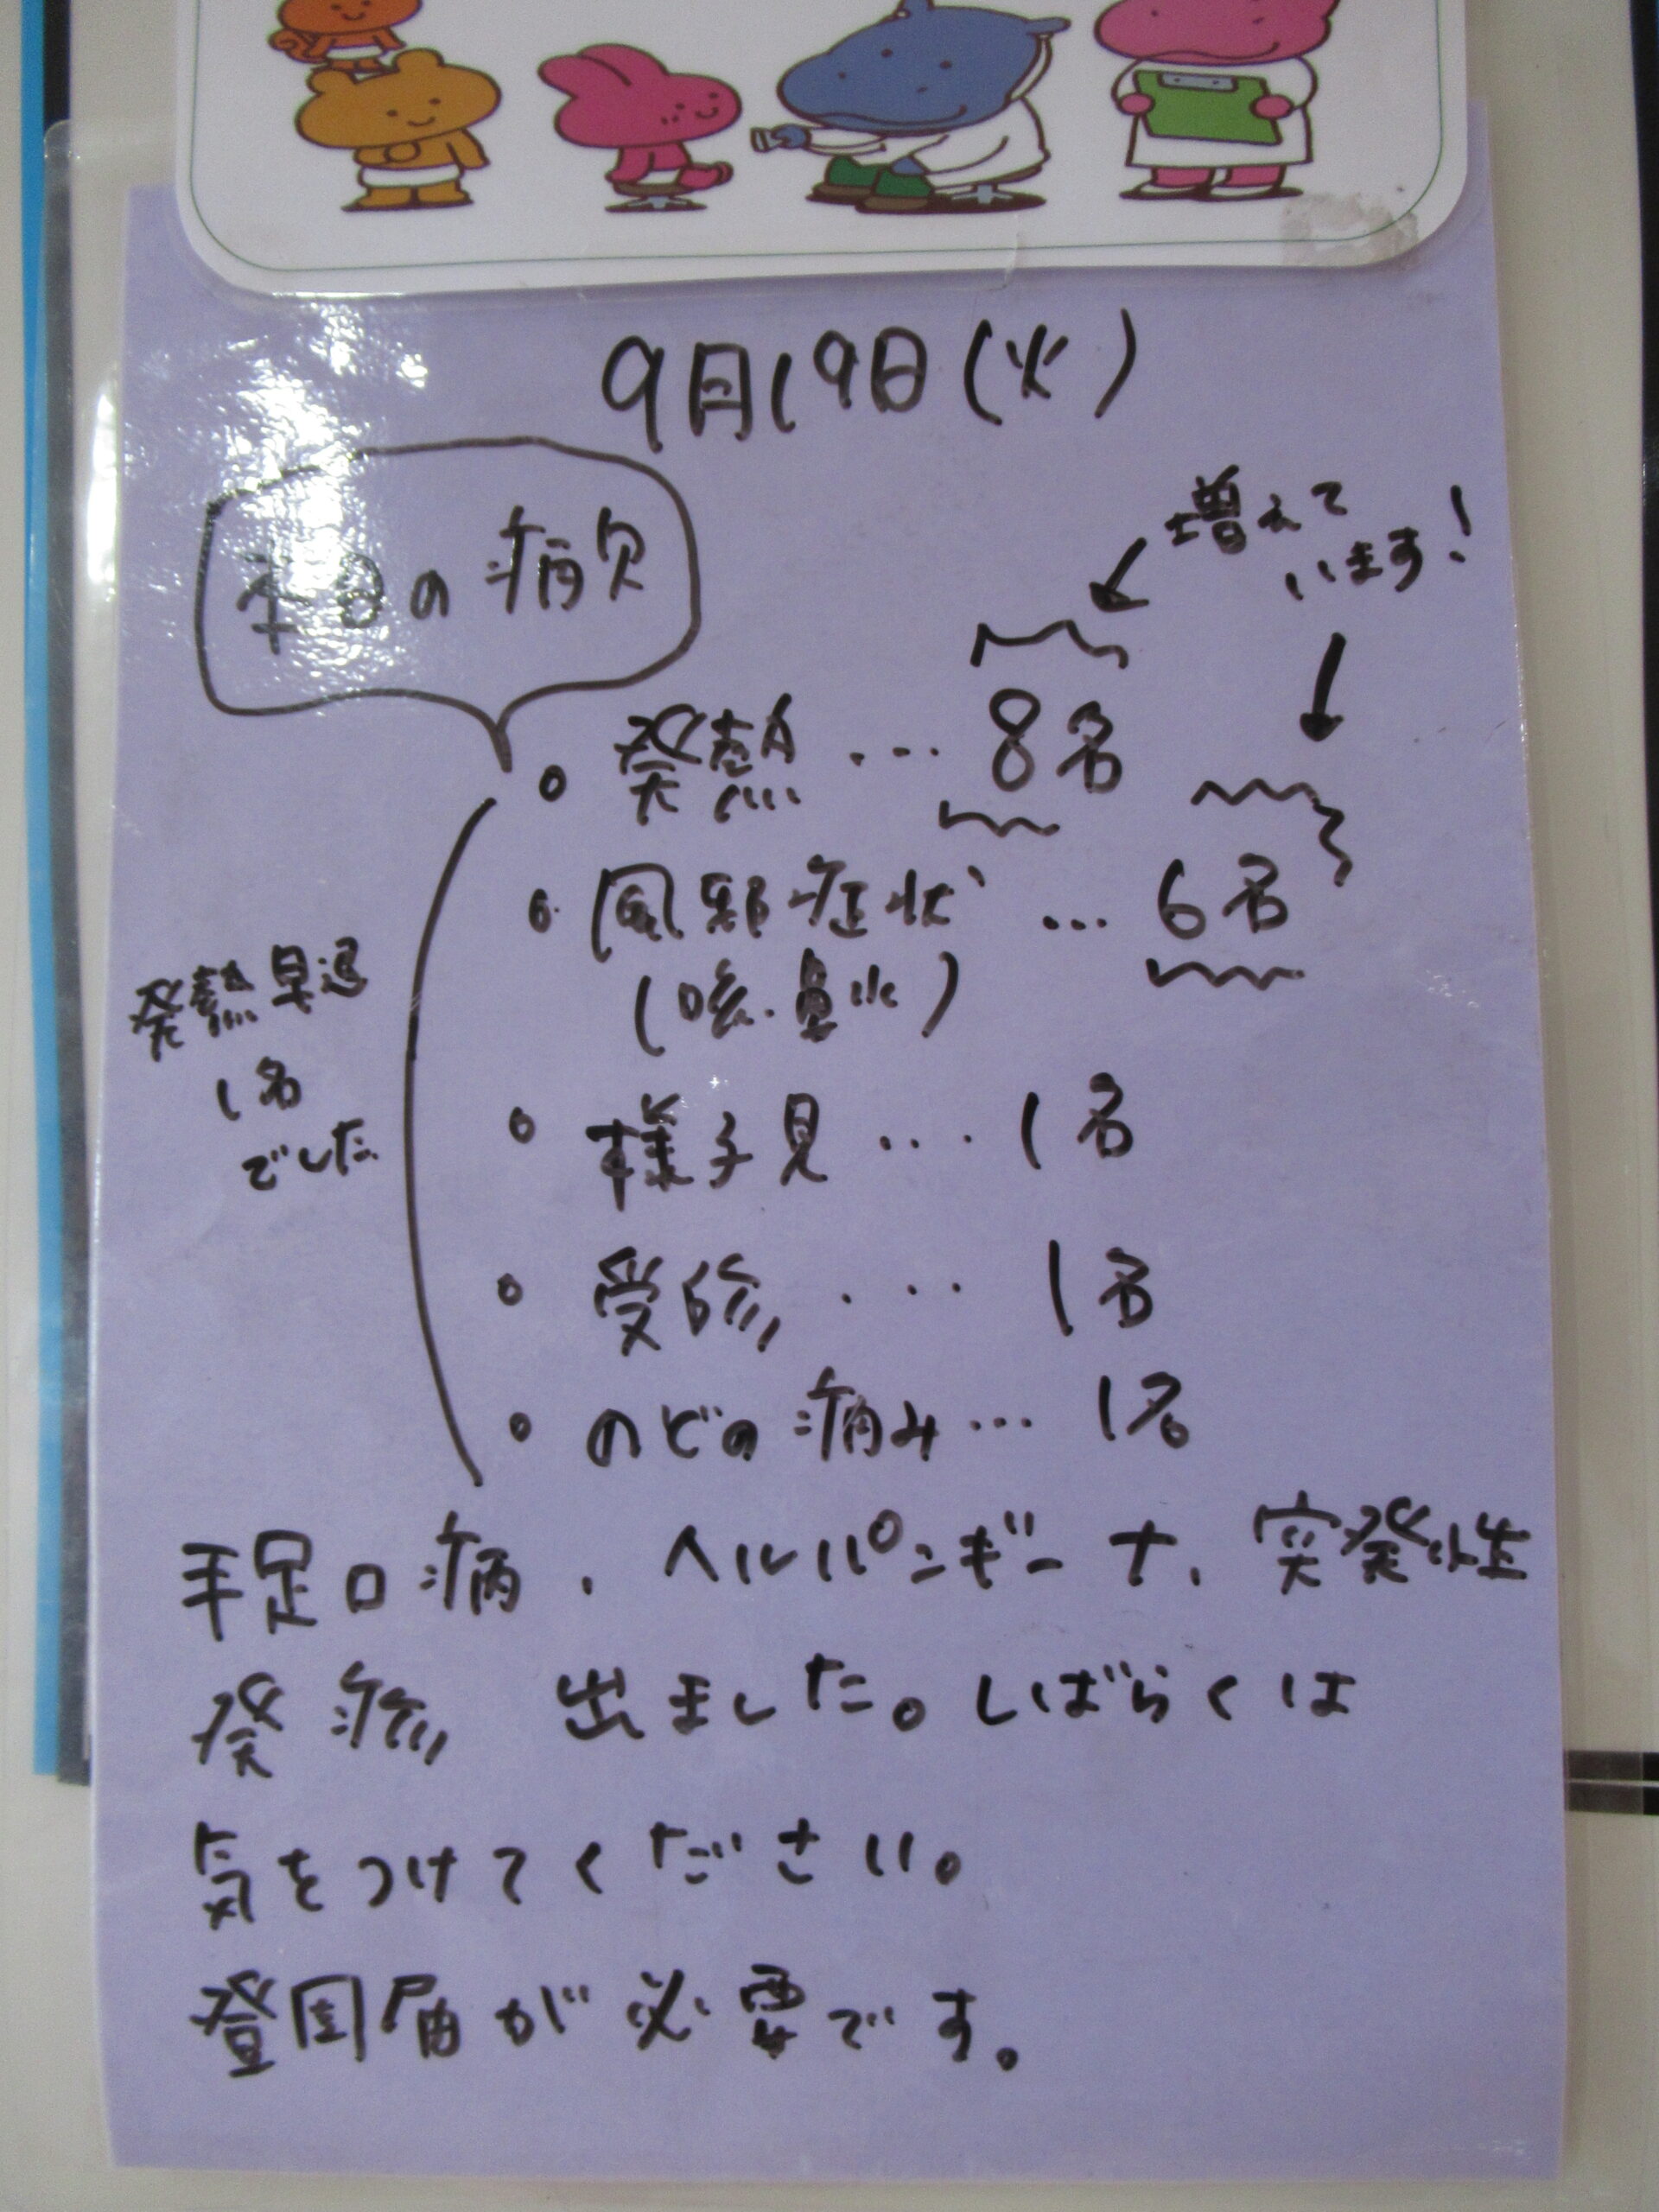 9月19日(火)
本日の病欠
増えて
います!
。発熱 ... 8名
。風邪症状 ... 6名
(咳.鼻水)
発熱早退
1名
でした
。様子見 .... 1名
。受診 .... 1名
。のどの痛み... 1名
手足口病、ヘルパンギーナ、突発性
発疹 出ました。しばらくは
気をつけてください。
登園届が必要です。